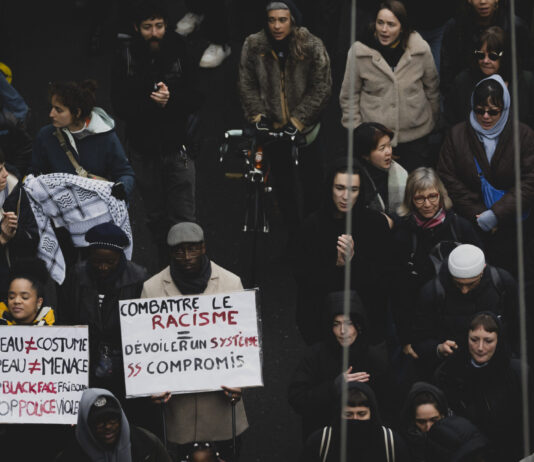 COMBATTRE LE
RACISME
=
DÉVOILER UN SYSTÈME
SS COMPROMIS
EAU ≠ COSTUME
EAU ≠ MENACE
BLACKFACE FRIBOU
OP POLICE VIOLE